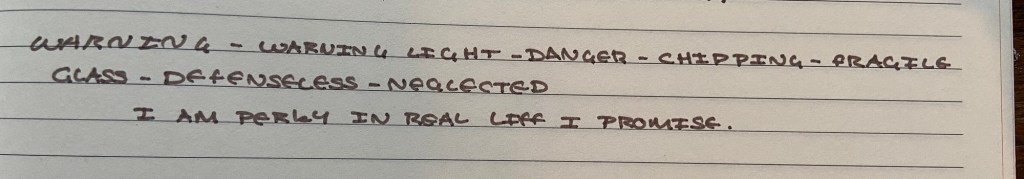 WARNING - WARNING LIGHT - DANGER - CHIPPING - FRAGILE
GLASS - DEFENSELESS - NEGLECTED
I AM PERKY IN REAL LIFE I PROMISE.